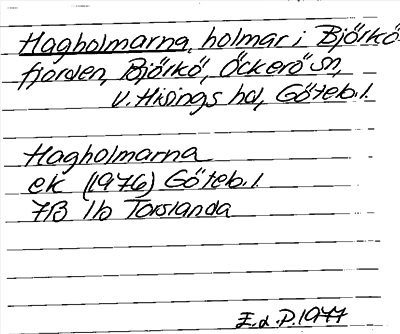 Hagholmarna, holmar i Björkö
fjorden, Björkö, Öckerö sn,
V. Hisings hd, Göteb. l.
Hagholmarna
ek (1976) Göteb. l.
7B 1b Torslanda
E.d.P. 1977